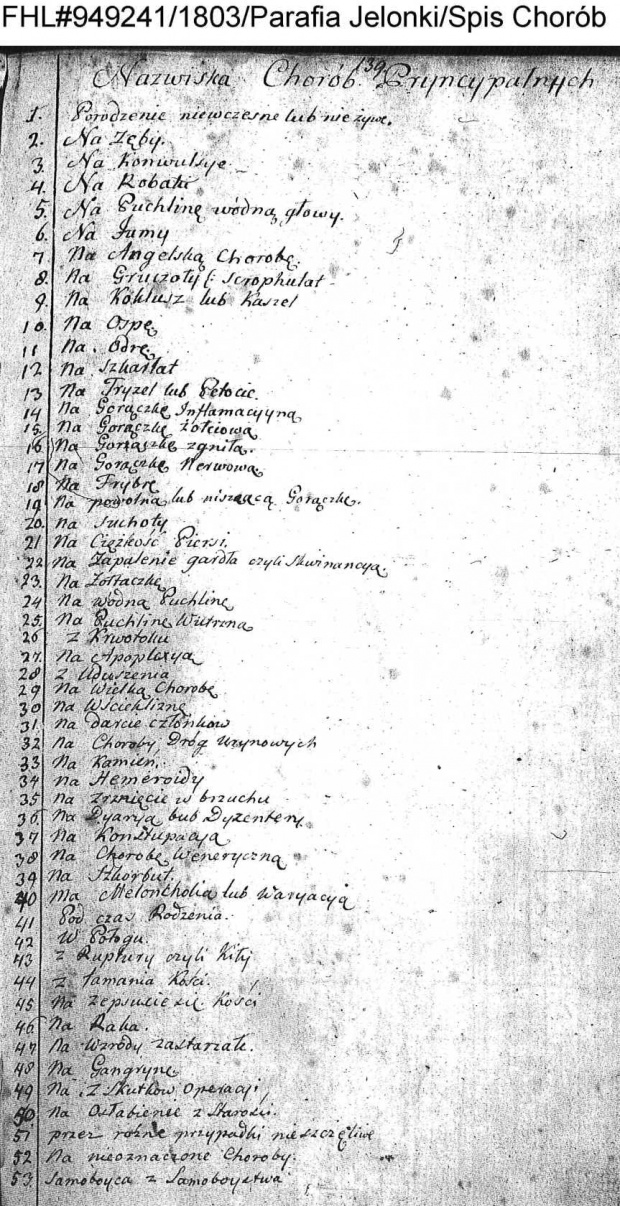 FHL#949241/1803/Parafia Jelonki/Spis Chorób
139
Nazwiska Chorób Pryncypalnych
1. Porodzenie niewczesne lub nieżywe.
2. Na Zęby.
3. Na Konwulsye.
4. Na Robaki
5. Na Puchlinę wódną głowy.
6. Na
7 Na Angelską Chorobę.
8. Na Gruczoły (: Scrophulat
9. Na Kóklusz lub Kaszel
10. Na Ospę
11 Na Odrę
12 Na Szkarłat
13 Na Fryzel lub Petocie.
14 Na Gorączkę Inflamacyyną
15. Na Gorączkę żołciową
16 Na Gorzączkę zgniłą.
17 Na Gorączkę Nerwową
18 Na Frybrę
19 Na powolną lub niszczącą Gorączkę.
20. Na Suchoty
21 Na Ciężkość Piersi
22 Na Zapalenie gardła czyli Skwinancyą.
23. Na Żołtaczkę
24 Na wodną Puchlinę
25. Na Puchlinę Wutrzną
26 z Krwotoku
27. Na Apoplexyą
28 z Uduszenia
29 Na Wielką Chorobę
30 Na Wściekliznę
31 Na darcie członków
32 Na Choroby Dróg Urynowych
33 Na Kamień.
34 Na Hemeroidy
35 Na Zrznięcie w brzuchu
36. Na Dyaryą bub Dyzentery
37 Na Konstupacyą
38 Na Chorobę Weneryczną
39 Na Szkorbut.
40 Na Meloncholią lub Waryacyą
41 Pod czas Rodzenia.
42 W Połogu.
43 z Ruptury czyli Kiły
44 z łamania Kości.
45 Na Zepsucie się Kości
46 Na Raka.
47 Na Wzrody zastarzałe.
48 Na Gangrynę
49 Na z Skutków Operacyi
50. Na Osłabienee z Starości.
51 przez różne przypadki nieszczęliwe
52 Na nieoznaczone Choroby.
53. Samoboyca z Samoboystwa